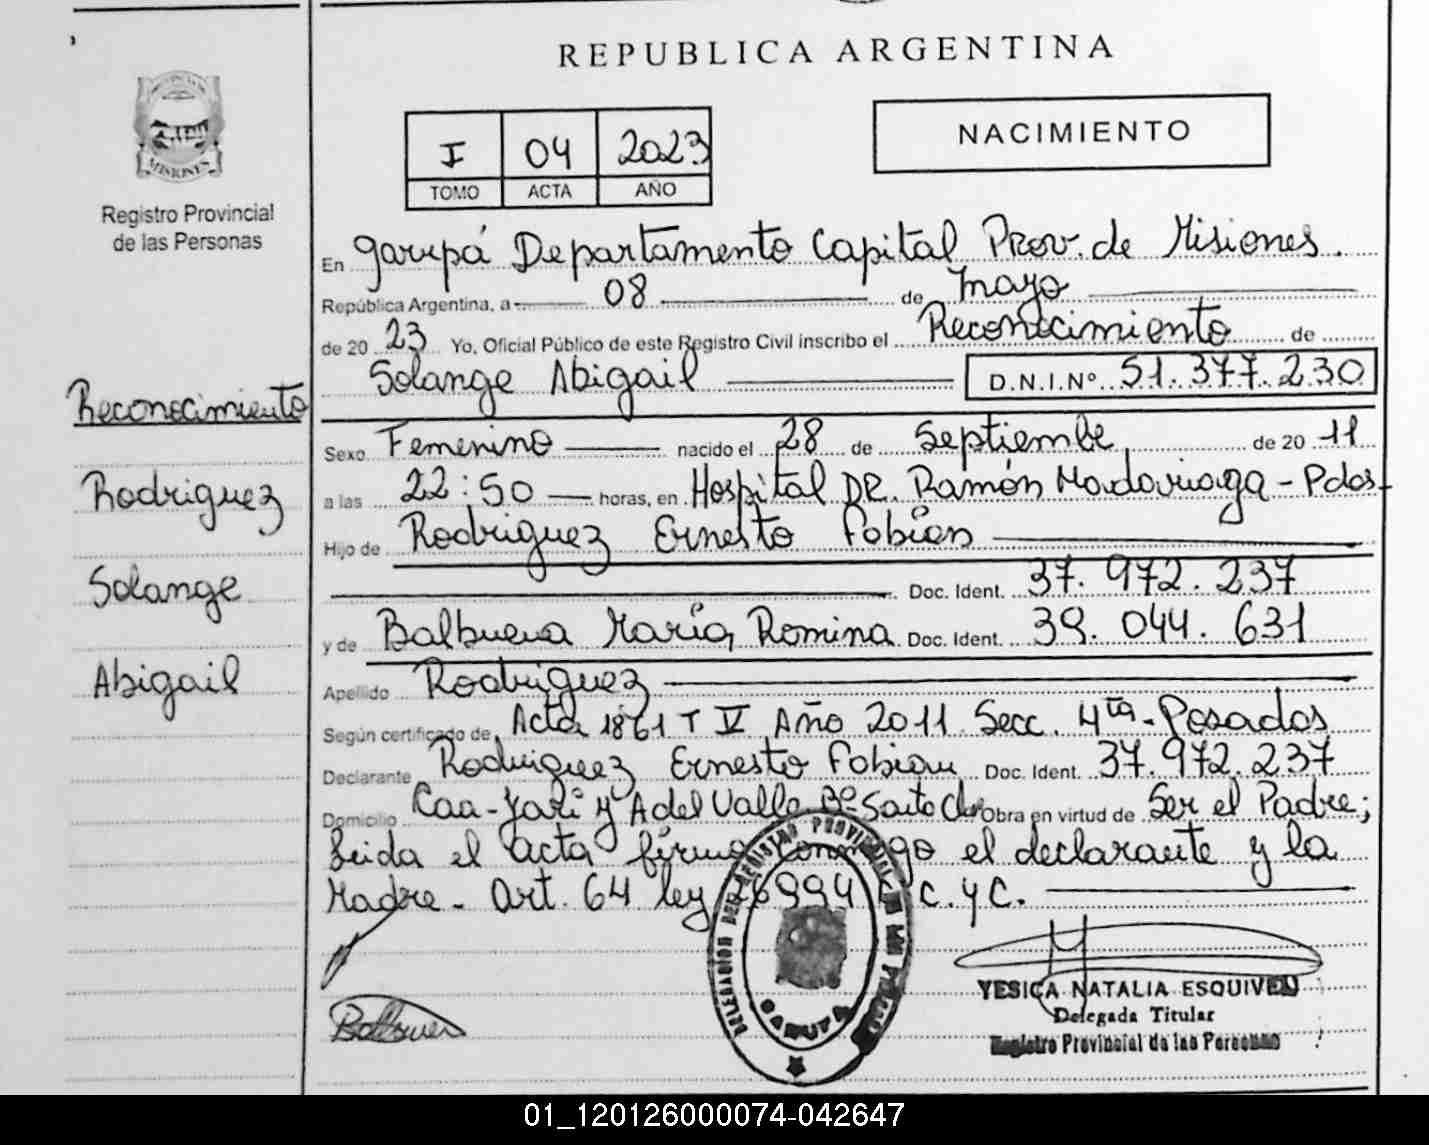 REPUBLICA ARGENTINA
I 04 2023
TOMO ACTA AÑO
NACIMIENTO
MISIONES
Registro Provincial
de las Personas
En Garupá Departamento Capital Prov. de Misiones.
República Argentina, a 08 de Mayo
de 20 23 Yo, Oficial Público de este Registro Civil inscribo el Reconocimiento de
Solange Abigail D.N.I.Nº 51.377.230
Reconocimiento
Rodriguez
Solange
Abigail
Sexo Femenino nacido el 28 de Septiembe de 20 11
a las 22:50 horas, en Hospital DR. Ramón Madariaga - Pdas
Hijo de Rodriguez Ernesto Fabian
Doc. Ident. 37.972.237
y de Balbuena María Romina Doc. Ident. 39.044.631
Apellido Rodriguez
Según certificado de Acta 1861 T V Año 2011 Secc. 4ta - Posadas
Declarante Rodriguez Ernesto Fabian Doc. Ident. 37.972.237
Domicilio Caa-Yarí y A del Valle Bº Santo Obra en virtud de Ser el Padre;
Leida el acta firma conmigo el declarante y la
Madre. Art. 64 ley 26994 C. y C.
DELEGACION DEL REGISTRO PROVINCIAL DE LAS PERSONAS
GARUPA
YESICA NATALIA ESQUIVEL
Delegada Titular
Registro Provincial de las Personas
01_120126000074-042647